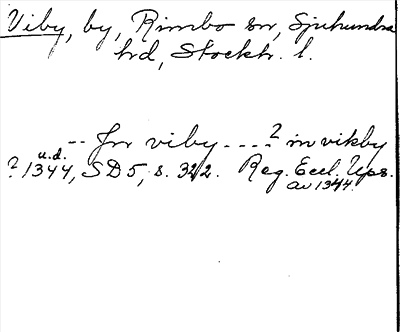 Viby, by, Rimbo sn, Sjuhundra
hd, Stockh. l.
-- Jn viby ---- ? in vikby
u.d.
? 1344, SD5, s. 322. Reg. Eccl. Ups.
av 1344.